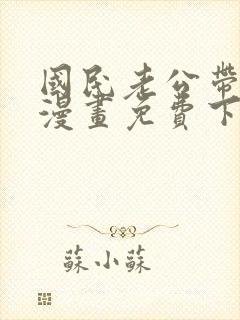 國民老公帶
漫畫免費下
蘇小蘇